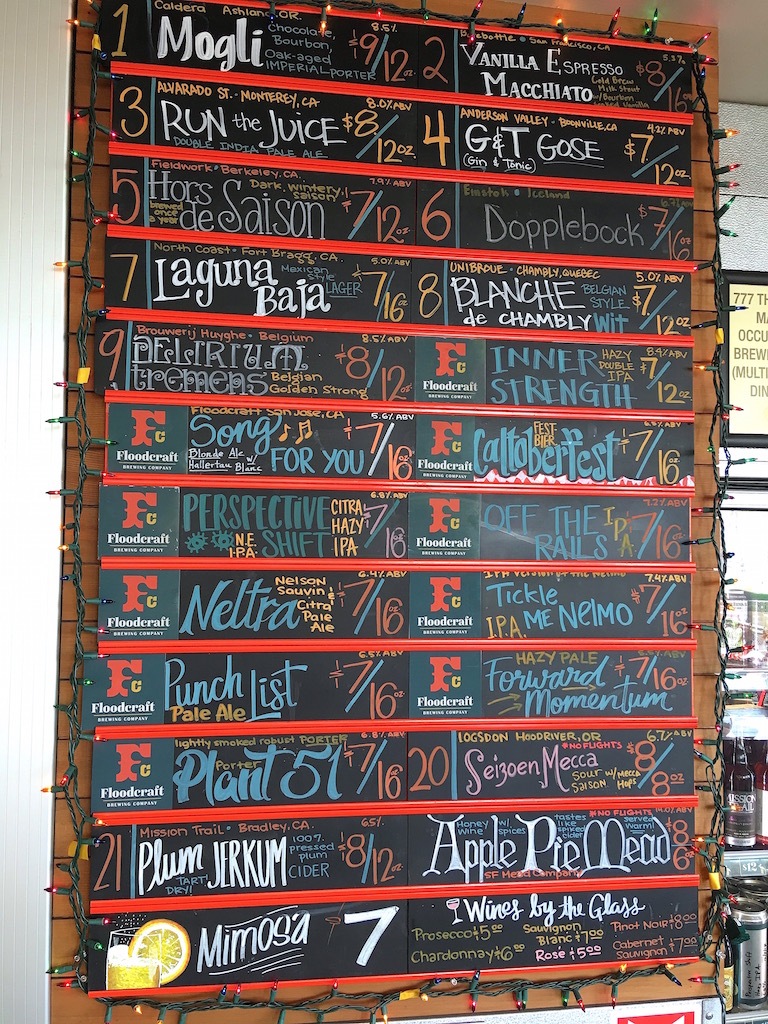 Caldera Ashland OR. 8.5%
1 Mogli Chocolate, Bourbon, Oak-aged IMPERIAL PORTER $9/12oz
San Francisco, CA 5.3%
2 VANILLA ESPRESSO MACCHIATO Cold Brew Milk Stout w/Bourbon Vanilla $8/16oz
ALVARADO ST. - MONTEREY, CA 8.0% ABV
3 RUN the JUICE $8/12oz
DOUBLE INDIA PALE ALE
ANDERSON VALLEY - BOONVILLE, CA 4.2% ABV
4 G&T GOSE $7/12oz
(Gin & Tonic)
Fieldwork • Berkeley, CA. 7.9% ABV
5 Hors de Saison Dark, wintery saison $7/12oz
brewed once a year
Einstok • Iceland 6.7% ABV
6 Dopplebock $7/16oz
North Coast • Fort Bragg, CA. 5.0% ABV
7 Laguna Baja Mexican style LAGER $7/16oz
UNIBROUE • CHAMBLY, QUEBEC 5.0% ABV
8 BLANCHE de CHAMBLY BELGIAN STYLE Wit $7/12oz
Brouwerij Huyghe • Belgium 8.5% ABV
9 DELIRIUM tremens Belgian Golden Strong $8/12oz
Fc Floodcraft BREWING COMPANY
INNER STRENGTH HAZY DOUBLE IPA 8.4% ABV $7/12oz
Fc Floodcraft BREWING COMPANY
Floodcraft San Jose, CA 5.6% ABV
Song FOR YOU $7/16oz
Blonde Ale w/ Hallertau Blanc
Fc Floodcraft BREWING COMPANY
Caltoberfest FEST-BIER $7/16oz
Fc Floodcraft BREWING COMPANY
6.8% ABV
PERSPECTIVE SHIFT N.E. I.P.A. CITRA HAZY IPA $7/16oz
Fc Floodcraft BREWING COMPANY
7.2% ABV
OFF THE RAILS IPA $7/16oz
Fc Floodcraft BREWING COMPANY
6.4% ABV
Neltra Nelson Sauvin & Citra Pale Ale $7/16oz
Fc Floodcraft BREWING COMPANY
IPA version of the Nelmo 7.4% ABV
Tickle ME NElMO I.P.A. $7/16oz
Fc Floodcraft BREWING COMPANY
6.5% ABV
Punch List Pale Ale $7/16oz
Fc Floodcraft BREWING COMPANY
HAZY PALE
Forward Momentum $7/16oz
Fc Floodcraft BREWING COMPANY
lightly smoked robust PORTER 6.8% ABV
Plant 51 Porter $7/16oz
LOGSDON HOODRIVER, OR 6.7% ABV
*NO FLIGHTS
20 Seizoen Mecca SOUR SAISON w/MECCA HOPS $8/8oz
Mission Trail • Bradley, CA. 6.5%
21 Plum JERKUM 100% pressed plum CIDER $8/12oz
TART! DRY!
*NO FLIGHTS 14.0% ABV
Honey wine w/ spices tastes like spiced cider served warm!
Apple Pie Mead $8/6oz
SF Mead Company
Mimosa 7
Wines by the Glass
Prosecco $5.00 Sauvignon Blanc $7.00 Pinot Noir $8.00
Chardonnay $6.00 Rose $5.00 Cabernet Sauvignon $7.00
777 TH
MA
OCCU
BREW
(MULTI
DIN
$12